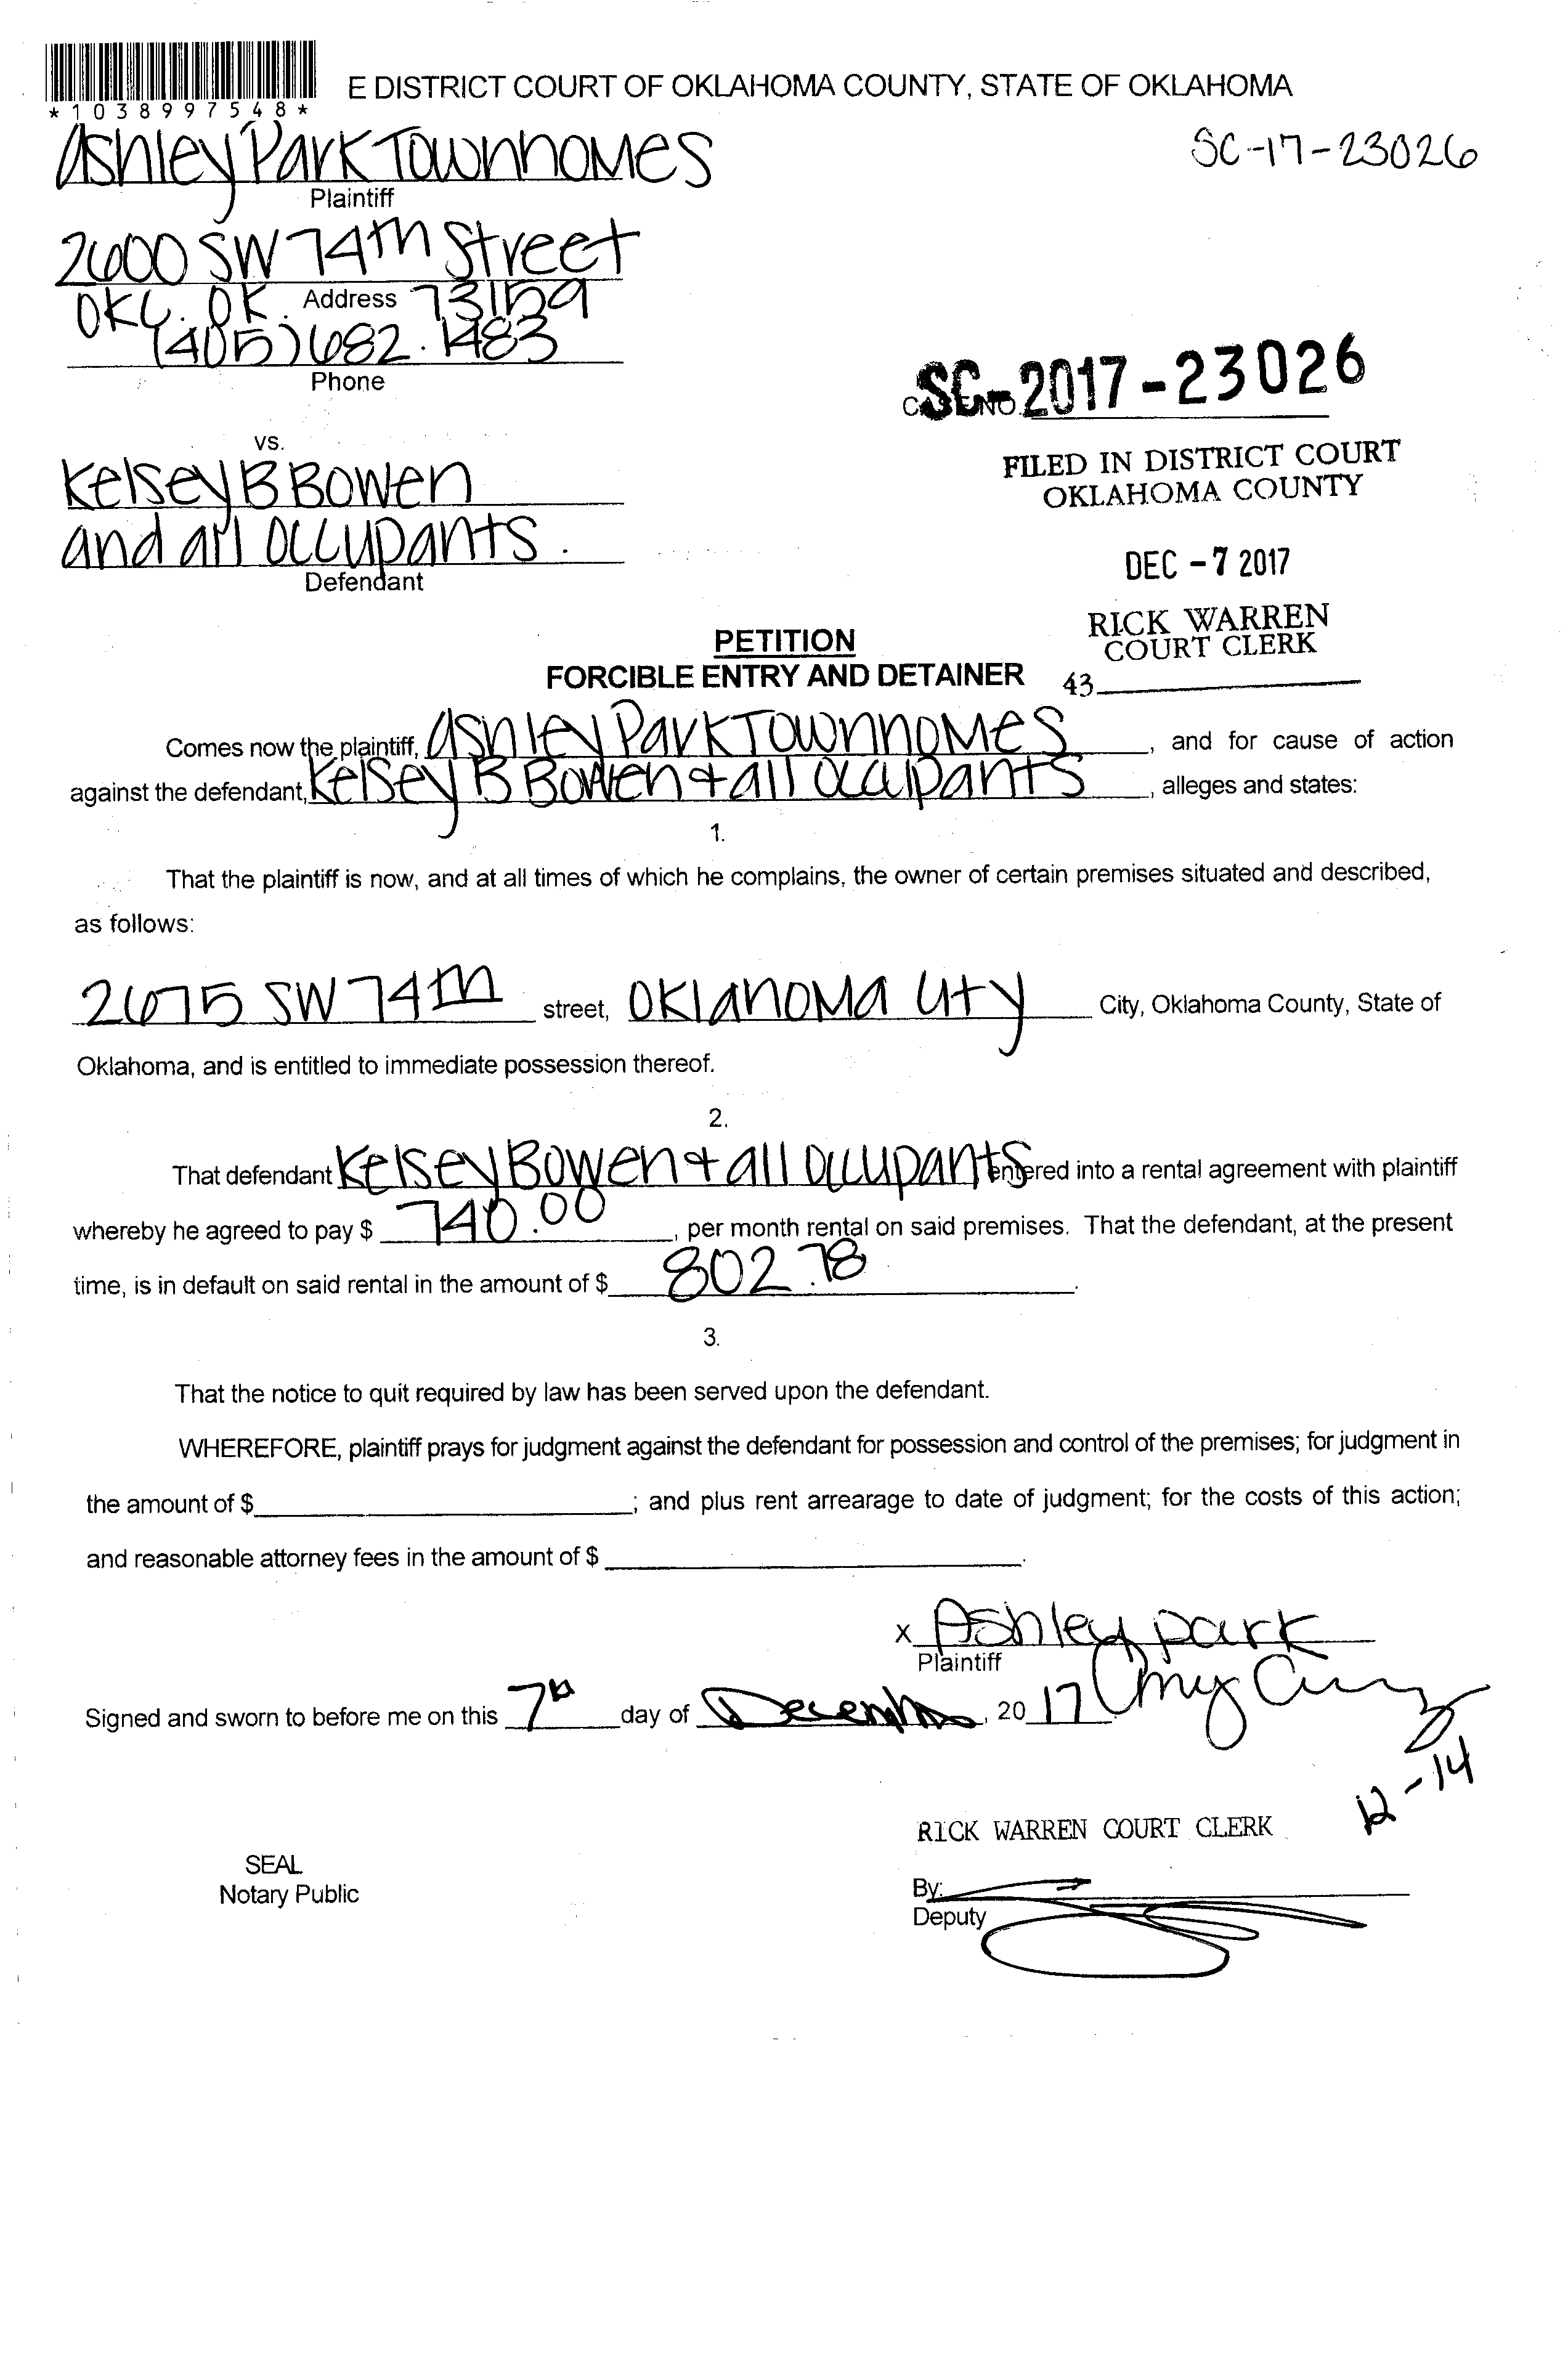 E DISTRICT COURT OF OKLAHOMA COUNTY, STATE OF OKLAHOMA
*1038997548*
Ashley Park Townhomes
SC-17-23026
Plaintiff
2600 SW 74th Street
Address
OKC. OK. 73159
(405)682.1483
Phone
SC-2017-23026
FILED IN DISTRICT COURT
OKLAHOMA COUNTY
DEC -7 2017
RICK WARREN
COURT CLERK
43
vs.
Kelsey B Bowen
and all occupants.
Defendant
PETITION
FORCIBLE ENTRY AND DETAINER
Comes now the plaintiff, Ashley Park Townhomes, and for cause of action
against the defendant, Kelsey B Bowen + all occupants, alleges and states:
1.
That the plaintiff is now, and at all times of which he complains, the owner of certain premises situated and described,
as follows:
2675 SW 74th street, Oklahoma City City, Oklahoma County, State of
Oklahoma, and is entitled to immediate possession thereof.
2.
That defendant Kelsey Bowen + all occupants entered into a rental agreement with plaintiff
whereby he agreed to pay $ 740.00, per month rental on said premises. That the defendant, at the present
time, is in default on said rental in the amount of $ 802.78.
3.
That the notice to quit required by law has been served upon the defendant.
WHEREFORE, plaintiff prays for judgment against the defendant for possession and control of the premises; for judgment in
the amount of $ ; and plus rent arrearage to date of judgment; for the costs of this action;
and reasonable attorney fees in the amount of $ .
x Ashley park
Plaintiff
Signed and sworn to before me on this 7th day of December, 2017
12-14
RICK WARREN COURT CLERK
SEAL
Notary Public
By:
Deputy